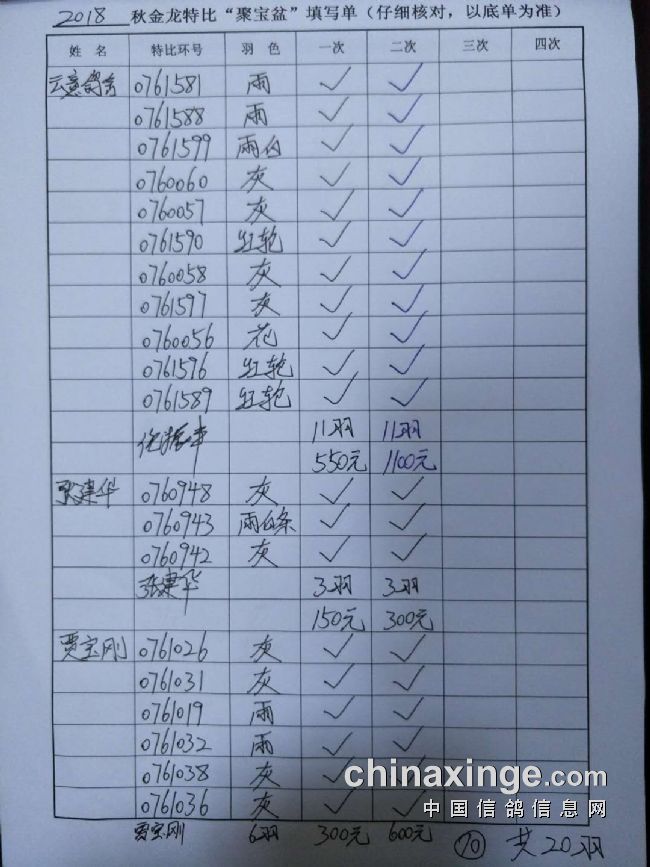 2018 秋金龙特比“聚宝盆”填写单（仔细核对，以底单为准）
姓 名 特比环号 羽 色 一次 二次 三次 四次
云意鸽舍 0761581 雨 ✓ ✓
0761588 雨 ✓ ✓
0761599 雨白 ✓ ✓
0760060 灰 ✓ ✓
0760057 灰 ✓ ✓
0761590 红轮 ✓ ✓
0760058 灰 ✓ ✓
0761597 灰 ✓ ✓
0760056 花 ✓ ✓
0761576 红轮 ✓ ✓
0761589 红轮 ✓ ✓
11羽 11羽
550元 1100元
张建华 0760948 灰 ✓ ✓
0760943 雨白条 ✓ ✓
0760942 灰 ✓ ✓
张建华 3羽 3羽
150元 300元
贾宝刚 0761026 灰 ✓ ✓
0761031 灰 ✓ ✓
0761019 雨 ✓ ✓
0761032 雨 ✓ ✓
0761038 灰 ✓ ✓
0761036 灰 ✓ ✓
贾宝刚 6羽 300元 600元 10 共20羽
chinaxinge.com
中国信鸽信息网